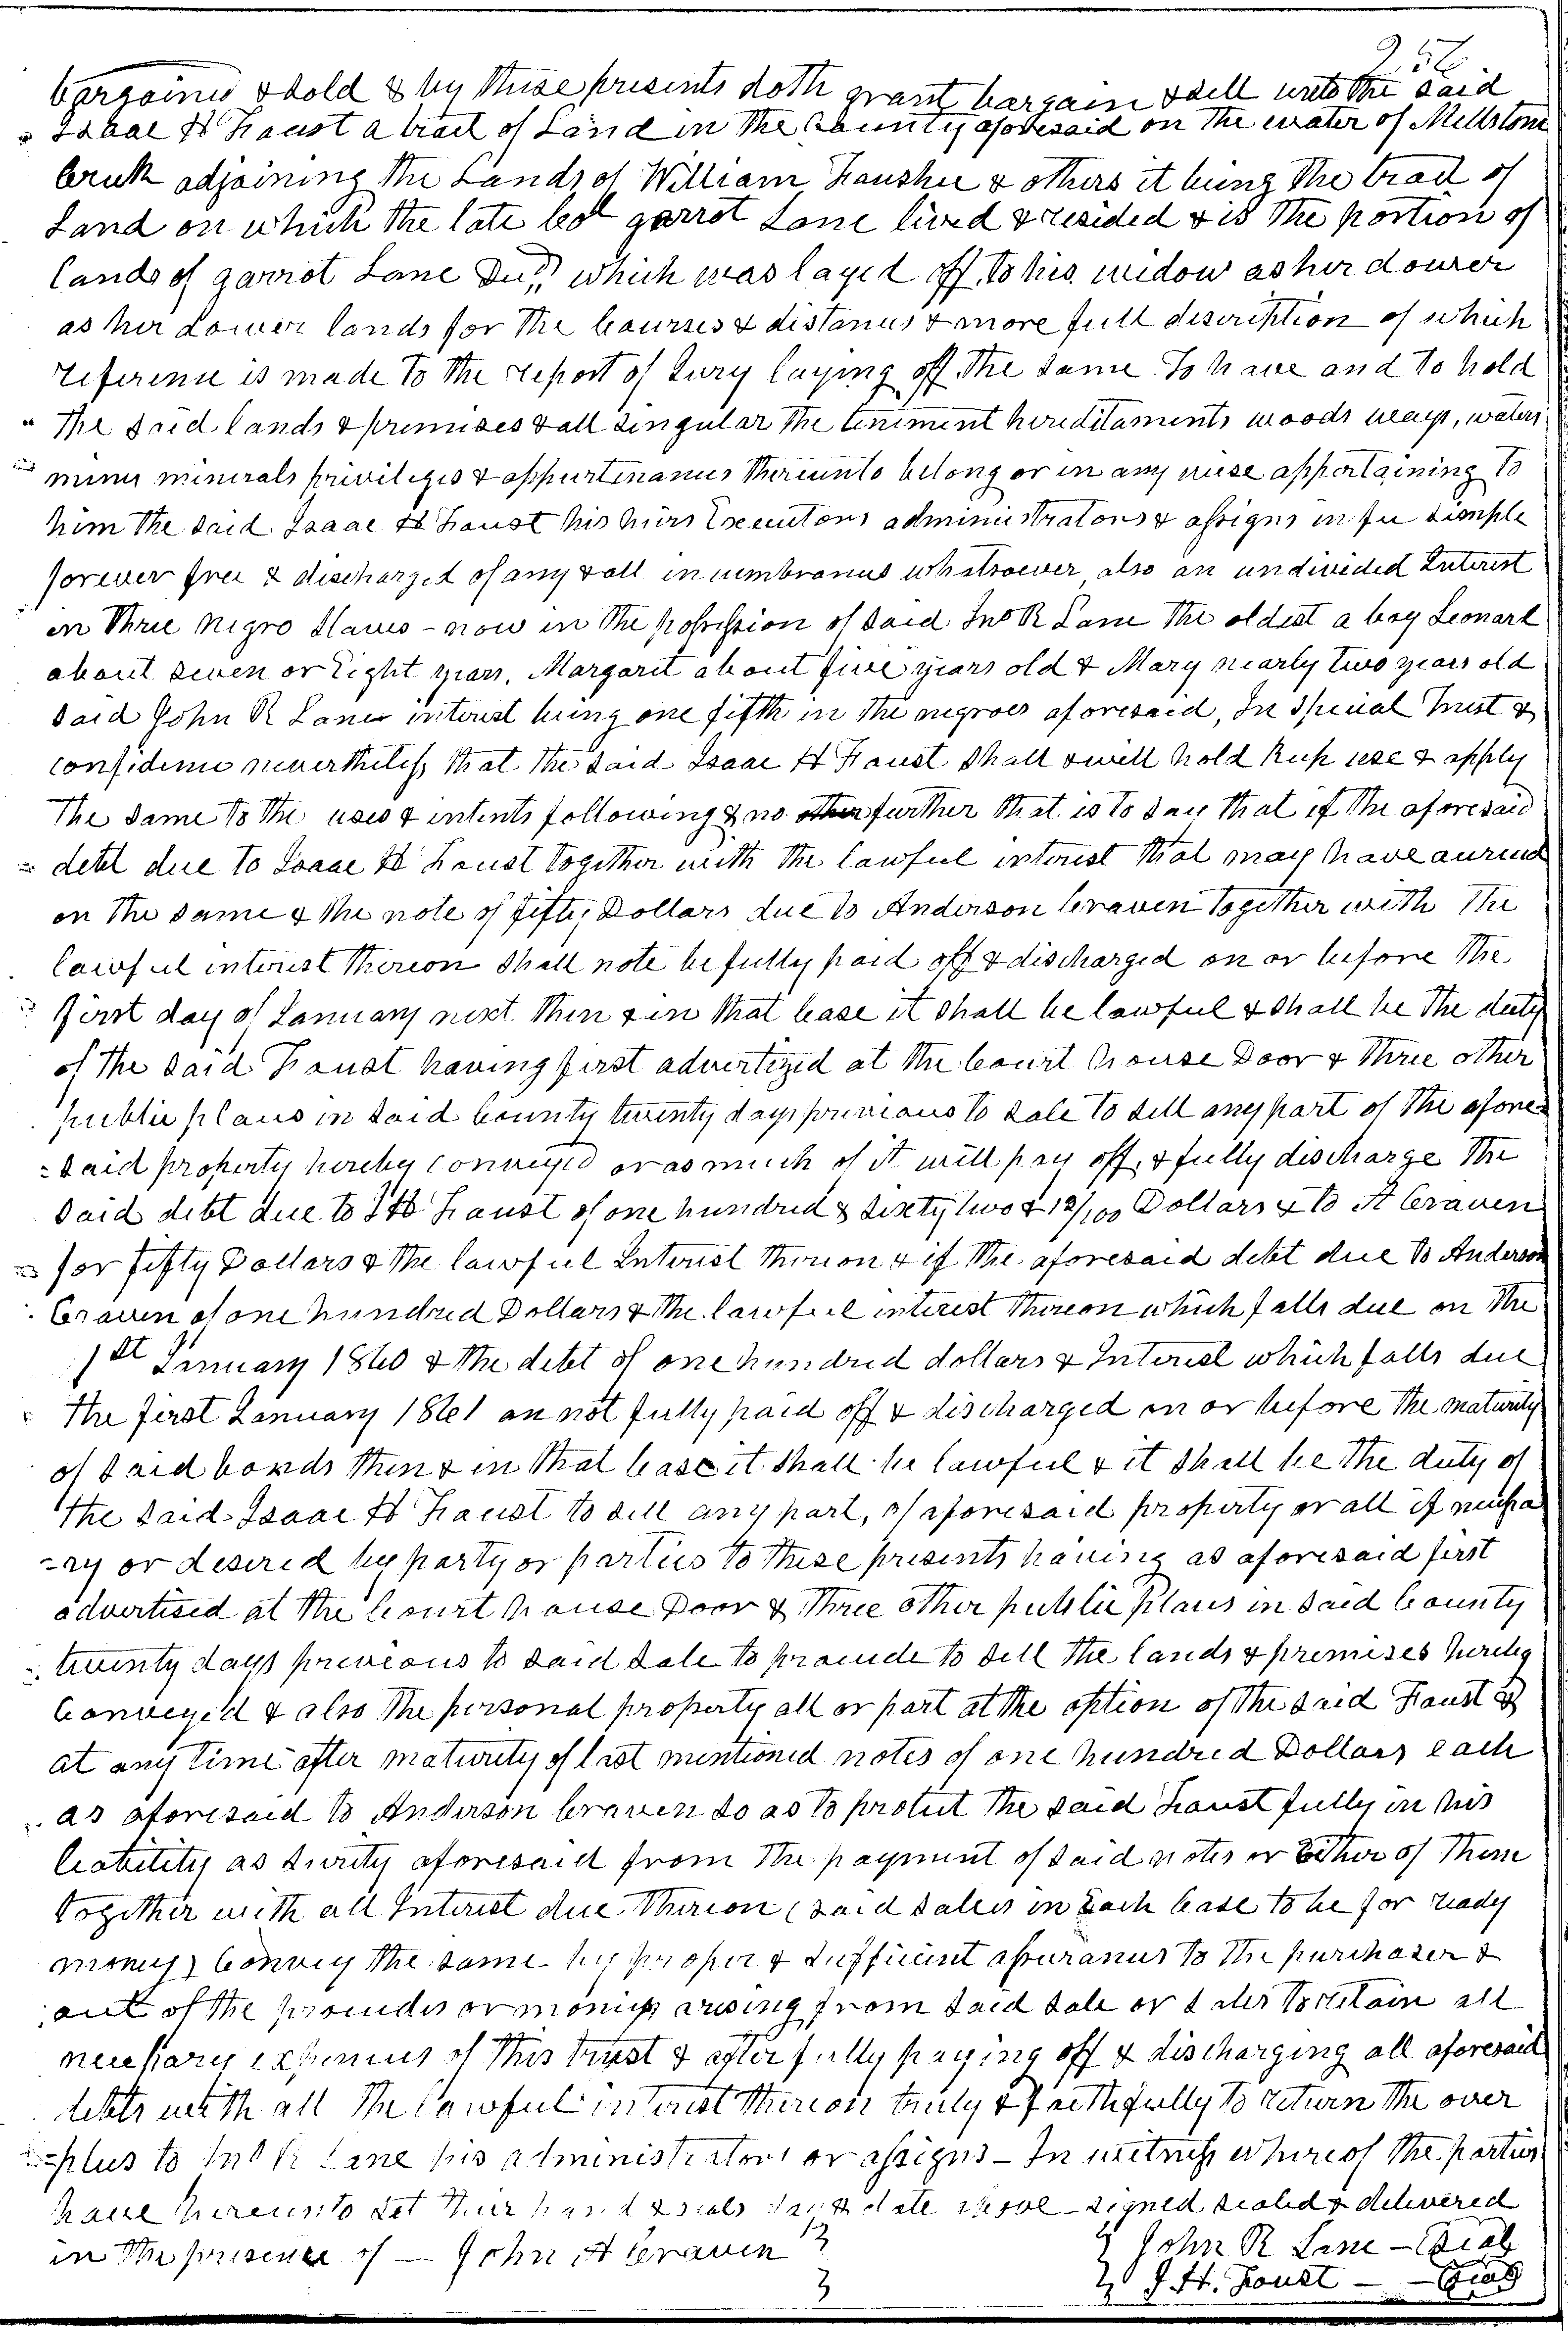 bargained & sold & by these presents doth grant bargain & sell unto the said
Isaac H Foust a tract of Land in the County aforesaid on the water of Millstone
Creek adjoining the Lands of William Foushee & others it being the tract of
Land on which the late Col garrot Lane lived & resided & is the portion of
lands of garrot Lane Decd which was layed off to his widow as her dower
as her dower lands for the Courses & distances & more full description of which
reference is made to the report of Jury laying off the same To have and to hold
The said lands & premises & all singular the teniment hereditaments woods ways, waters
mines minerals privileges & appurtenances thereunto belong or in any wise appertaining to
him the said Isaac H Foust his heirs Executors administrators & assigns in fee simple
forever free & discharged of any & all incumbrances whatsoever also an undivided Interest
in three negro slaves - now in the possession of said Jno R Lane the oldest a boy Leonard
about seven or Eight years, Margaret about five years old & Mary nearly two years old
said John R Lanes interest being one fifth in the negroes aforesaid, In special Trust &
confidence nevertheless that the said Isaac H Foust shall & will hold keep use & apply
The same to the uses & intents following & no further that is to say that if the aforesaid
debt due to Isaac H Foust together with the lawful interest that may have accrued
on the same & the note of fifty Dollars due to Anderson Craven together with the
lawful interest thereon shall note be fully paid off & discharged on or before the
first day of January next then & in that case it shall be lawful & shall be the duty
of the said Foust having first advertized at the Court house Door & three other
public places in said County twenty days previous to sale to sell any part of the afore-
-said property hereby conveyed or as much of it will pay off, & fully discharge the
said debt due to I H Foust of one hundred & sixty two & 12/100 Dollars & to A Craven
for fifty Dollars & the lawful Interest thereon & if the aforesaid debt due to Anderson
Craven of one hundred Dollars & the lawful interest thereon which falls due on the
1st January 1860 & the debt of one hundred dollars & Interest which falls due
the first January 1861 are not fully paid off & discharged on or before the maturity
of said bonds then & in that case it shall be lawful & it shall be the duty of
the said Isaac H Foust to sell any part, of aforesaid property or all if necessa
-ry or desired by party or parties to these presents having as aforesaid first
advertised at the Court house Door & three other public places in said County
twenty days previous to said sale to proceede to sell the lands & premises hereby
Conveyed & also the personal property all or part at the option of the said Foust &
at any time after maturity of last mentioned notes of one hundred Dollars each
as aforesaid to Anderson Craven so as to protect the said Foust fully in his
liability as surity aforesaid from the payment of said notes or Either of them
together with all Interest due thereon (said sales in Each case to be for ready
money) Convey the same by proper & sufficient assurances to the purchaser &
out of the proceedes or moneys arising from said sale or sales to retain all
necessary expences of this trust & after fully paying off & discharging all aforesaid
debts with all the lawful interest thereon truly & faithfully to return the over
-plus to Jno R Lane his administrators or assigns - In witness whereof the parties
have hereunto set their hand & seals day & date above - signed sealed & delivered
in the presence of - John A Craven
John R Lane - Seal
I. H. Foust - Seal